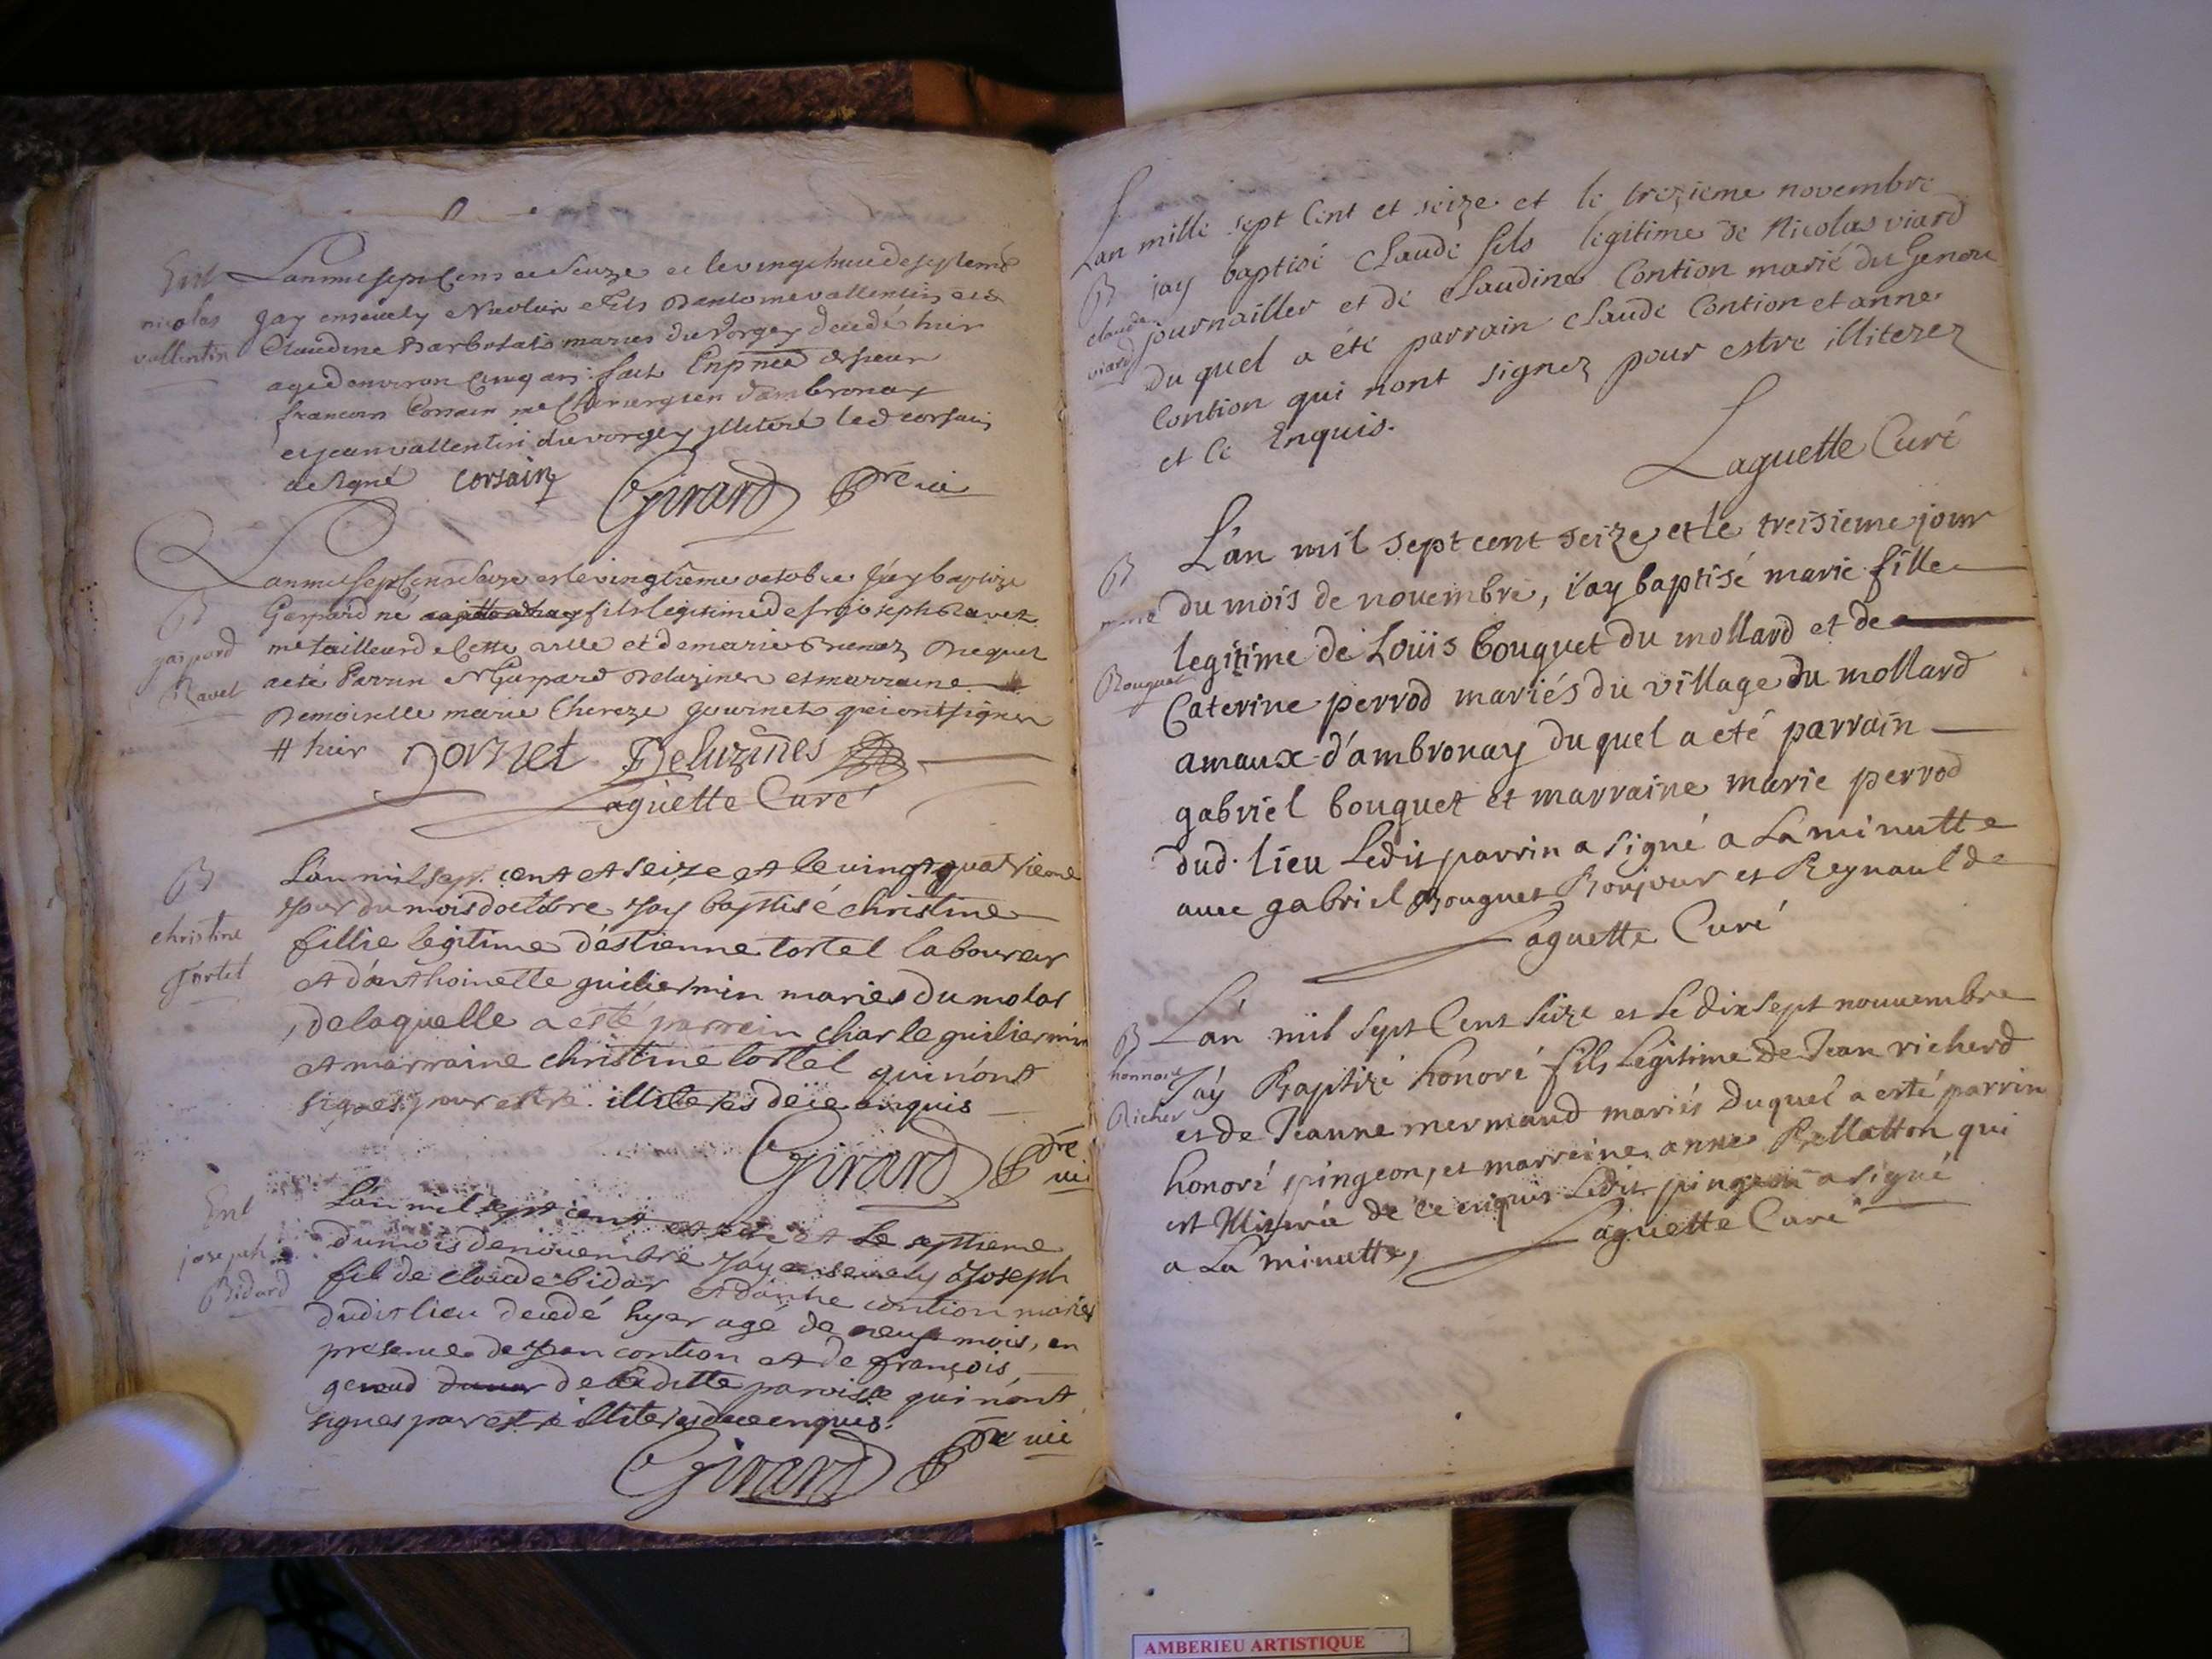 Ent
nicolas
vallentin
Lan mil sept Cens et Seize et le vingt huict de septemb
Jay ensevely Nicolas fils Dantoine vallentin et de
Claudine Barbolat mariés du Vorgey decedé hier
agé denviron Cinq ans fait En pnce de sieur
francois Corsain me Chirurgien dambronay
et jean vallentin du vorgey illiteré led corsain
a signé corsain Girard Ptre vic
B
gaspard
Ravet
Lan mil sept Cens Seize et le vingtieme octobre Jay baptize
Gaspard né fils legitime de joseph Ravet
me tailleur de Cette ville et de marie duquel
a eté Parrin Gaspard Deluzines et marraine
Demoiselle marie Thereze qui ont signez
# hier Deluzines
Laguette Curé
B
christine
Tortel
L'an mil sept cent et seize et le vingt quatrieme
jour du mois d'octobre j'ay baptisé christine
fillie legitime d'estienne tortel laboureur
et d'anthoinette guiliermin mariés du molar
de laquelle a esté parrein charle guiliermin
et marraine christine tortel qui n'ont
signes pour estre illiteres de ce enquis
Girard Ptre vic
Ent
joseph
Bidard
L'an mil sept cent et seize et le septieme
du mois de novembre j'ay ensevely Joseph
fils de claude bidar et d'anne contion mariés
dudit lieu decedé hyer agé de neuf mois, en
presence de jean contion et de françois
de laditte paroisse qui n'ont
signes par estre illiteres de ce enquis.
Girard Ptre vic
Lan mille sept Cent et seize et le trezieme novembre
B
claude
viard
jay baptisé Claude fils legitime de Nicolas viard
journailler et de Claudine Contion marié du Genou
du quel a été parrain Claude Contion et anne
Contion qui nont signez pour estre illiterez
et Ce Enquis.
Laguette Curé
B
marie
Bouguet
L'an mil sept cent seize et le treisieme jour
du mois de nouembre, i'ay baptisé marie fille
legitime de Loüis bouguet du mollard et de
Caterine perrod mariés du village du mollard
amaux d'ambronay du quel a eté parrain
gabriel bouguet et marraine marie perrod
dud. lieu Ledit parrin a signé a La minutte
auec gabriel Bouguet Bonjour et Reynaulde
Laguette Curé
B
honnoré
Richer
L'an mil sept Cent Seize et Le dix sept nouuembre
J'ay Baptizé honoré fils Legitime de Jean richerd
et de Jeanne mermaud mariés Duquel a esté parrin
honoré pingeon, et marreine anne Prellatton qui
est illiterée de ce enquis Ledit pingeon a signé
a La minutte, Laguette Curé
AMBERIEU ARTISTIQUE